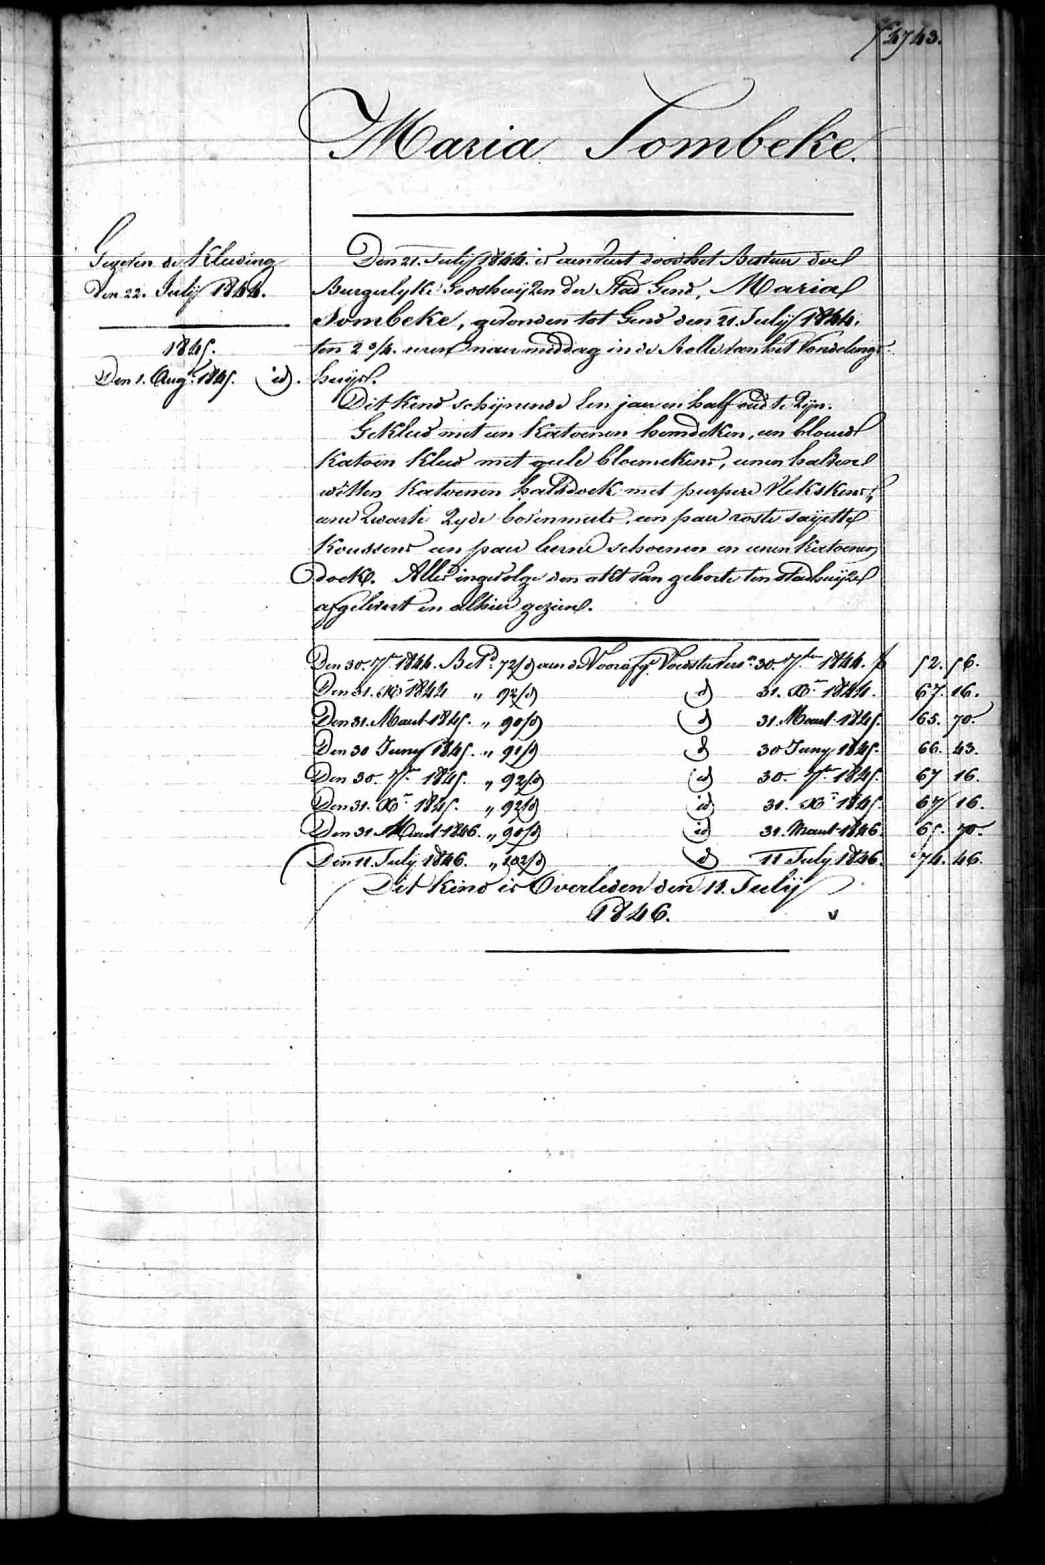 4743.
Maria Tombeke.
Gegeven de Kleeding
Den 22. Julij 1844.
1845.
Den 1. Aug. 1845. (id).
Den 21. Julij 1844. is aenveert door het Bestuer der
Burgerlyke Godshuijzen der Stad Gend, Maria
Tombeke, gevonden tot Gend den 21. Julij 1844.
ten 2 3/4. uren naermiddag in de Rolle van het Vondelings-
huijs.
Dit Kind schijnende Een jaer en half oud te Zijn.
Gekleed met een Katoenen hemdeken, een blouw
Katoen Kleed met geele bloemekens, eenen halven
witten Katoenen halsdoek met purpere Vlekskens,
eene Zwarte Zyde bovenmuts, een paer roste saijette
Koussens een paer leerne schoenen en eenen Katoenen
doek. Alles ingevolge den akt van geborte ten stadhuijze
afgelevert en alhier gezien.
Den 30. 7br 1844. Bet.d 72/d aen de Voorafg. Voedsters 30. 7br 1844. f 52. 56.
Den 31. Xbr 1844 „ 92/d (id) 31. Xbr 1844. 67. 16.
Den 31. Maert 1845. „ 90/d (id) 31. Maert 1845. 65. 70.
Den 30 Juny 1845. „ 91/d (id) 30 Juny 1845. 66. 43.
Den 30. 7br 1845. „ 92/d (id) 30. 7br 1845. 67 16.
Den 31. Xbr 1845. „ 92/d (id) 31. Xbr 1845. 67 16.
Den 31 Maert 1846. „ 90/d (id) 31. Maert 1846. 65. 70.
Den 11 Julij 1846. „ 102/d (id) 11 July 1846. 74. 46.
Dit kind is Overleden den 11. Julij
1846.